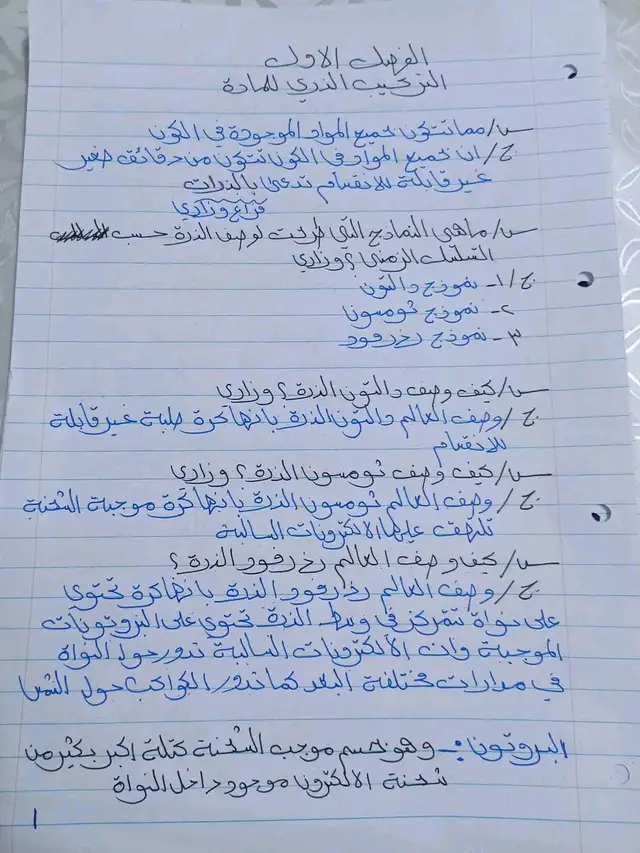 الفصل الاول
التركيب الذري للمادة
س/ مما تتكون جميع المواد الموجودة في الكون
ج/ ان جميع المواد في الكون تتكون من دقائق صغير
غير قابلة للانقسام تدعى بالذرات
وزاري
س/ ماهي النماذج التي طرحت لوصف الذرة حسب
التسلسل الزمني؟ وزاري
ج/ ١- نموذج دالتون
٢- نموذج ثومسون
٣- نموذج رذرفورد
س/ كيف وصف دالتون الذرة؟ وزاري
ج/ وصف العالم دالتون الذرة بانها كرة صلبة غير قابلة
للانقسام
س/ كيف وصف ثومسون الذرة؟ وزاري
ج/ وصف العالم ثومسون الذرة بانها كرة موجبة الشحنة
تلتصق عليها الالكترونات السالبة
س/ كيف وصف العالم رذرفورد الذرة؟
ج/ وصف العالم رذرفورد الذرة بانها كرة تحتوي
على نواة تتمركز في وسط الذرة تحتوي على البروتونات
الموجبة وان الالكترونات السالبة تدور حول النواة
في مدارات مختلفة البعد كما تدور الكواكب حول الشمس
البروتون:- وهو جسم موجب الشحنة كتلة اكبر بكثير من
شحنة الالكترون موجود داخل النواة
1